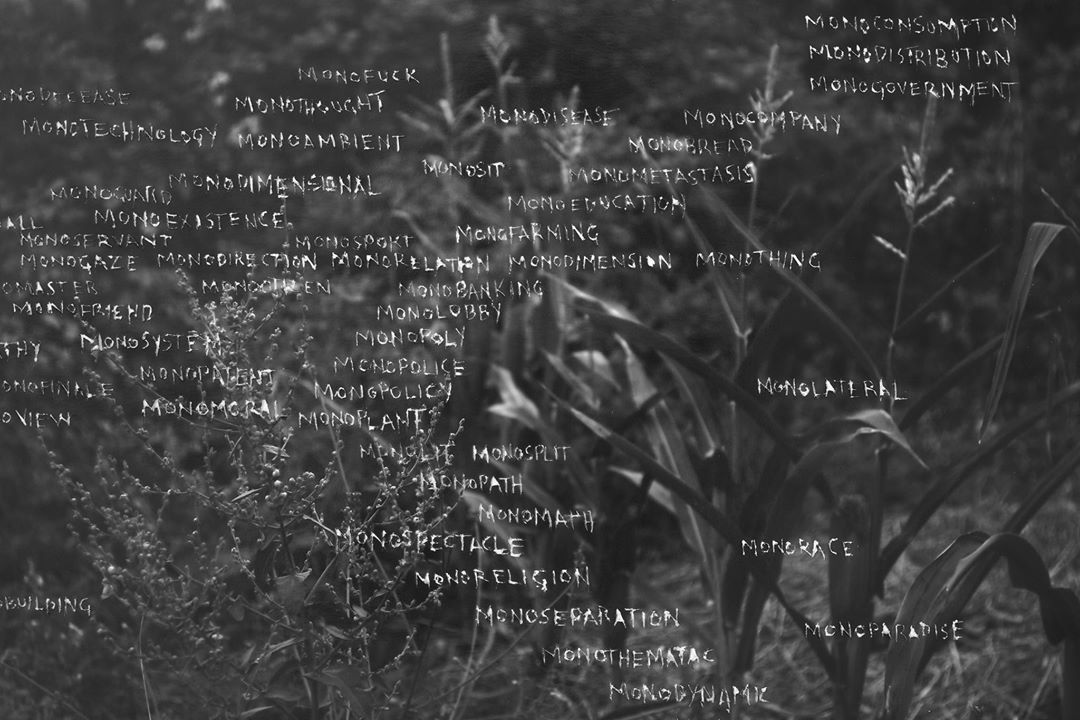 MONOCONSUMPTION
MONODISTRIBUTION
MONOGOVERNMENT
MONOFUCK
MONOTHOUGHT
MONODISEASE
MONOCOMPANY
MONOTECHNOLOGY
MONOAMBIENT
MONOBREAD
MONOSIT
MONOMETASTASIS
MONODIMENSIONAL
MONOGUARD
MONOEDUCATION
MONOEXISTENCE
ALL
MONOFARMING
MONOSERVANT
MONOSPORT
MONOGAZE MONODIRECTION MONORELATION MONODIMENSION MONOTHING
OMASTER
MONOBANKING
MONOFRIEND
MONOLOBBY
MONOSYSTEM
MONOPOLY
THY
MONOPOLICE
MONOPATENT
ONOFINALE
MONOPOLICY
OVIEW
MONOMORAL
MONOPLANT
MONOLATERAL
MONOSPLIT
MONOPATH
MONOMATH
MONOSPECTACLE
MONORACE
MONORELIGION
OBUILDING
MONOSEPARATION
MONOPARADISE
MONOTHEMATAC
MONODYNAMIC